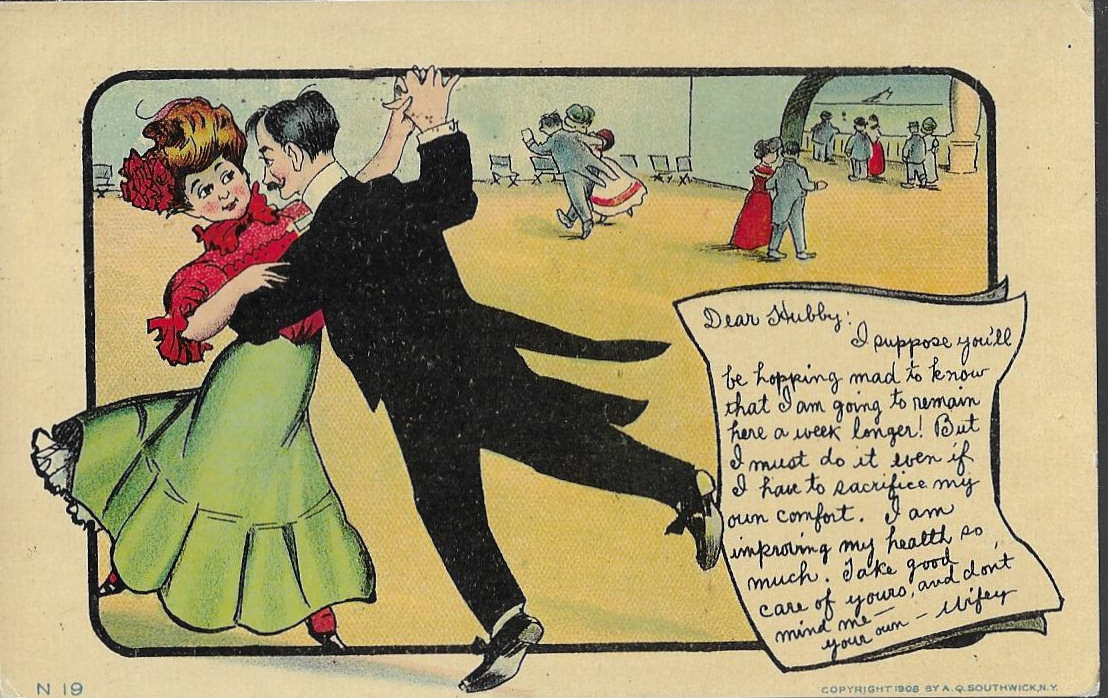 Dear Hubby:
I suppose you'll
be hopping mad to know
that I am going to remain
here a week longer! But
I must do it even if
I have to sacrifice my
own comfort. I am
improving my health so
much. Take good
care of yours, and don't
mind me —
your own — Wifey
N 19
COPYRIGHT 1908 BY A. Q. SOUTHWICK, N.Y.